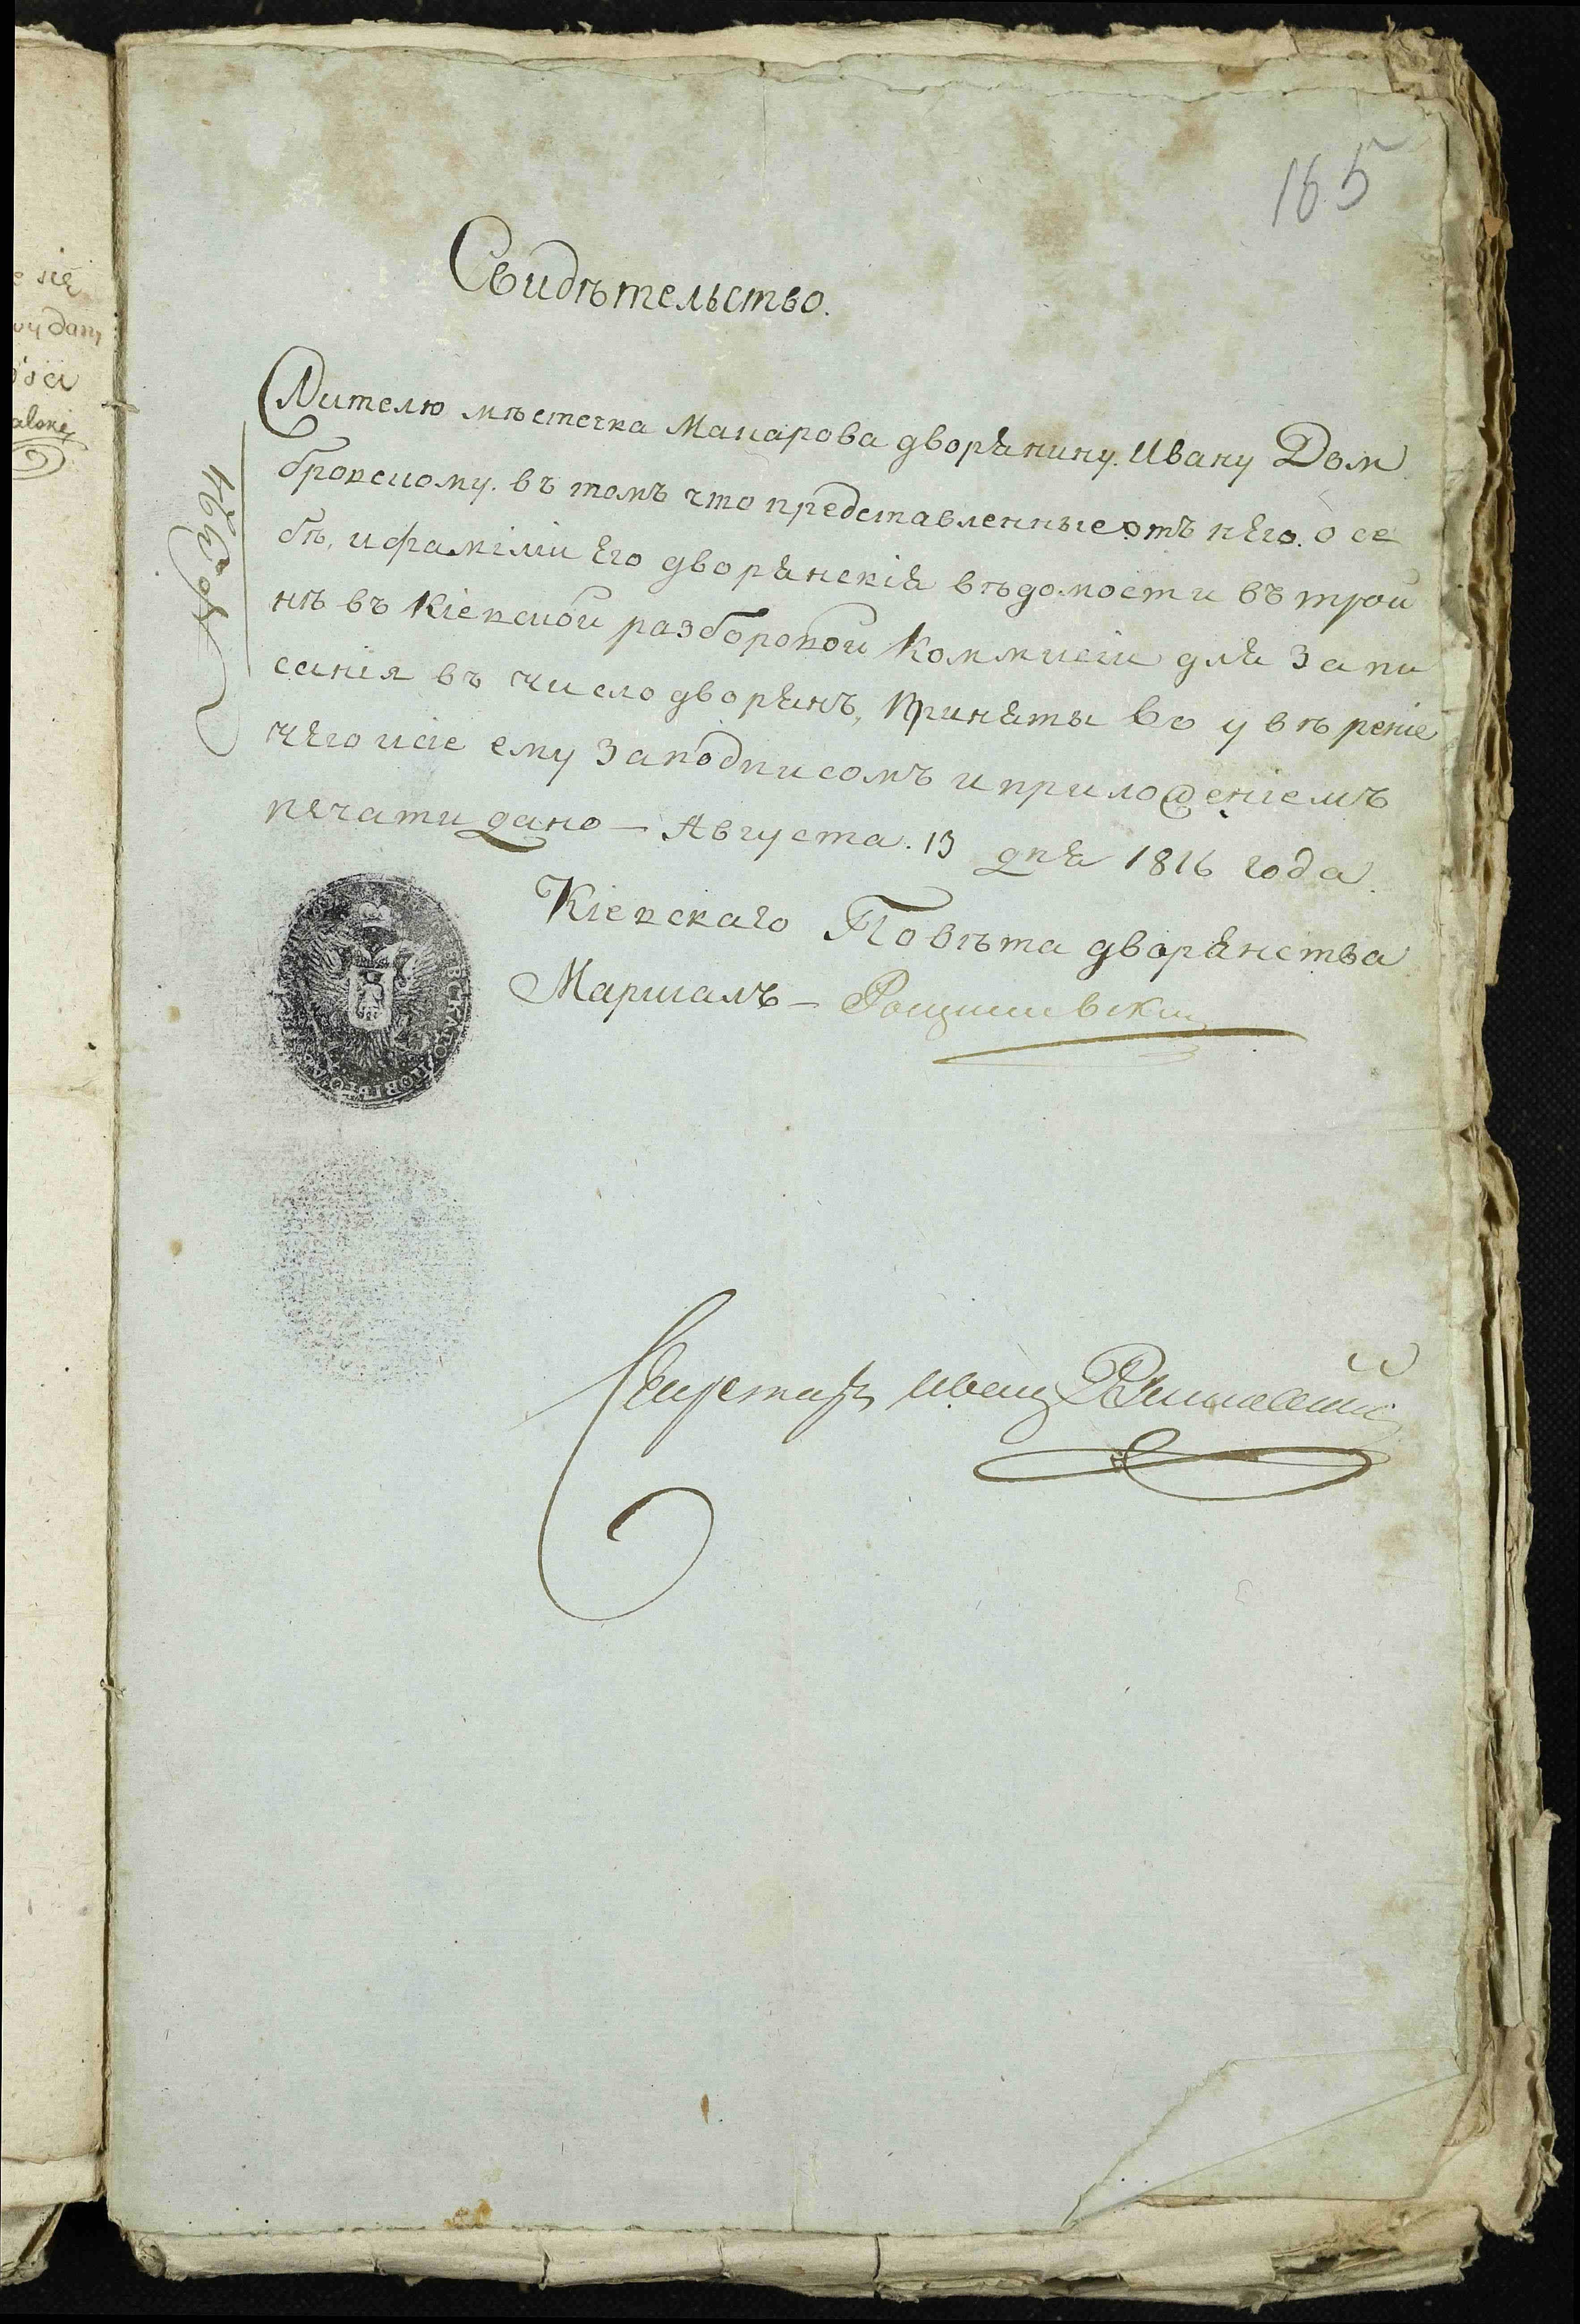 165
Свидѣтельство.
Жителю мѣстечка Макарова дворянину Ивану Дом
бровскому. въ томъ что представленные отъ него. о се
бѣ, и фамиліи Его дворянскія вѣдомости въ трои
нѣ въ Кіевской разборовой Коммисіи для Запи
санія въ число дворянъ, приняты Во увѣреніе
чего и сіе ему За подписомъ и приложеніемъ
печати дано — Августа. 13 дня 1816 года.
Кіевскаго Повѣта дворянства
Маршалъ — Рощишевский
Секретарь Иванъ
ę się
ości